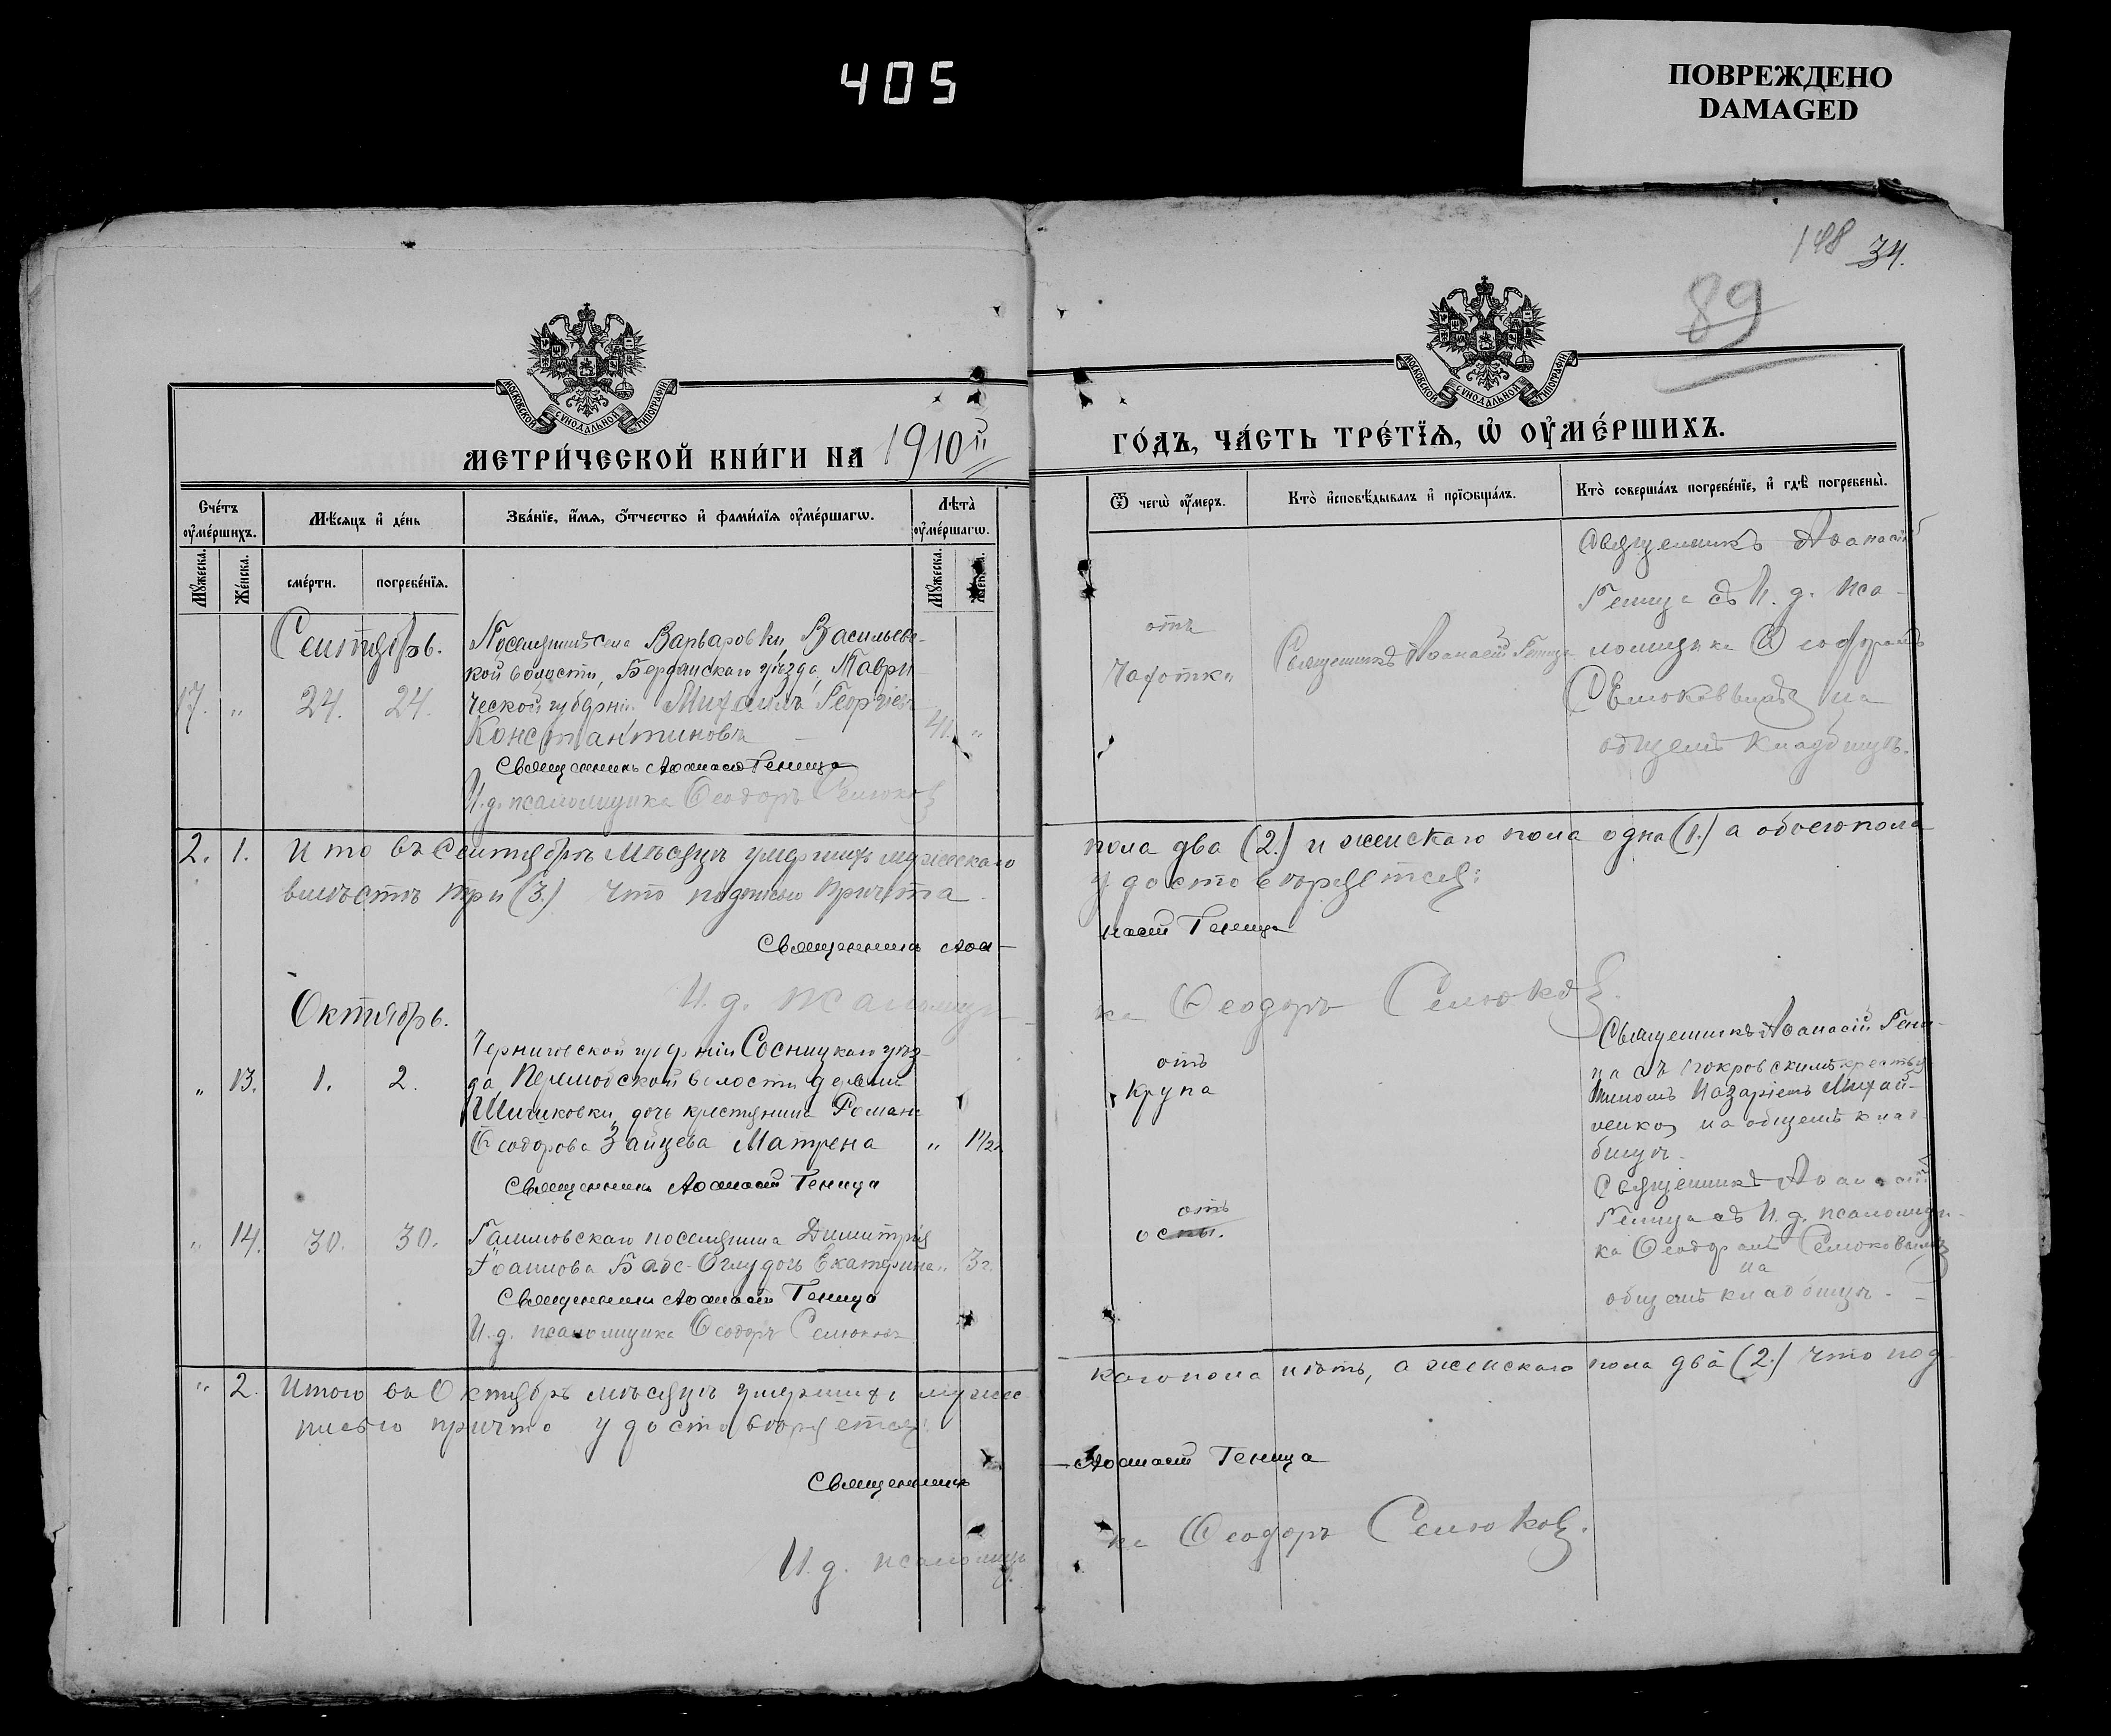 405
ПОВРЕЖДЕНО
DAMAGED
148 34.
89
МОСКОВСКОЙ СУНОДАЛЬНОЙ ТИПОГРАФІИ
МОСКОВСКОЙ СУНОДАЛЬНОЙ ТИПОГРАФІИ
МЕТРИ́ЧЕСКОЙ КНИ́ГИ НА 1910й
ГО́ДЪ, ЧА́СТЬ ТРЕ́ТЇѦ, Ѡ҆ ОУ҆МЕ́РШИХЪ.
Сче́тъ оу҆ме́ршихъ.
Мѣ́сяцъ и҆ де́нь
Зва́нїе, и҆́мѧ, ѻ҆́тчество и҆ фами́лїѧ оу҆ме́ршагѡ.
Лѣ́та̀ оу҆ме́ршагѡ.
Мꙋ́жеска.
Же́нска.
сме́рти.
погребе́нїѧ.
Мꙋ́жеска.
Ѿ чегѡ̀ оу҆́меръ.
Кто̀ и҆сповѣ́дывалъ и҆ прїѻбща́лъ.
Кто̀ соверша́лъ погребе́нїе, и҆ гдѣ̀ погребены̀.
Сентябрь.
17. „ 24. 24.
Поселянинъ села Варваровки, Васильевс-
кой волости, Бердянскаго уѣзда, Таври-
ческой губерніи Михаилъ Георгіевъ
Константиновъ — 41. „
Священникъ Аѳанасій Геница
И. д. псаломщика Ѳеодоръ Селюковъ
отъ
Чахотки
Священникъ Аѳанасій Геница
Священникъ Аѳанасій
Геница съ И. д. пса-
ломщика Ѳеодоромъ
Селюковымъ на
общемъ кладбищѣ.
2. 1. Итого въ Сентябрѣ мѣсяцѣ умершихъ мужескаго
пола два (2.) и женскаго пола одна (1.) а обоего пола
вмѣстѣ три (3.) что подписью причта
удостовѣряется:
Священникъ Аѳа-
насій Геница
И. д. псаломщи-
ка Ѳеодоръ Селюковъ.
Октябрь.
„ 13. 1. 2.
Черниговской губерніи Сосницкаго уѣз-
да, волости деревни
дочь крестьянина Романа
Ѳеодорова Зайцева Матрена „ 1½.
Священникъ Аѳанасій Геница
отъ
Крупа
Священникъ Аѳанасій Гени-
ца съ Покровскимъ крестья-
ниномъ Назаріемъ Михай-
ленко на общемъ клад-
бищѣ.
„ 14. 30. 30.
поселянина Димитрія
Іоаннова Бабе-Оглу дочь Екатерина „ 3г.
Священникъ Аѳанасій Геница
И. д. псаломщика Ѳеодоръ Селюковъ
отъ
оспы.
Священникъ Аѳанасій
Геница съ И. д. псаломщи-
ка Ѳеодоромъ Селюковымъ
на
общемъ кладбищѣ. —
„ 2. Итого въ Октябрѣ мѣсяцѣ умершихъ мужес-
каго пола нѣтъ, а женскаго пола два (2.) что под-
писью причта удостовѣряется:
Священникъ
Аѳанасій Геница
И. д. псаломщи-
ка Ѳеодоръ Селюковъ.